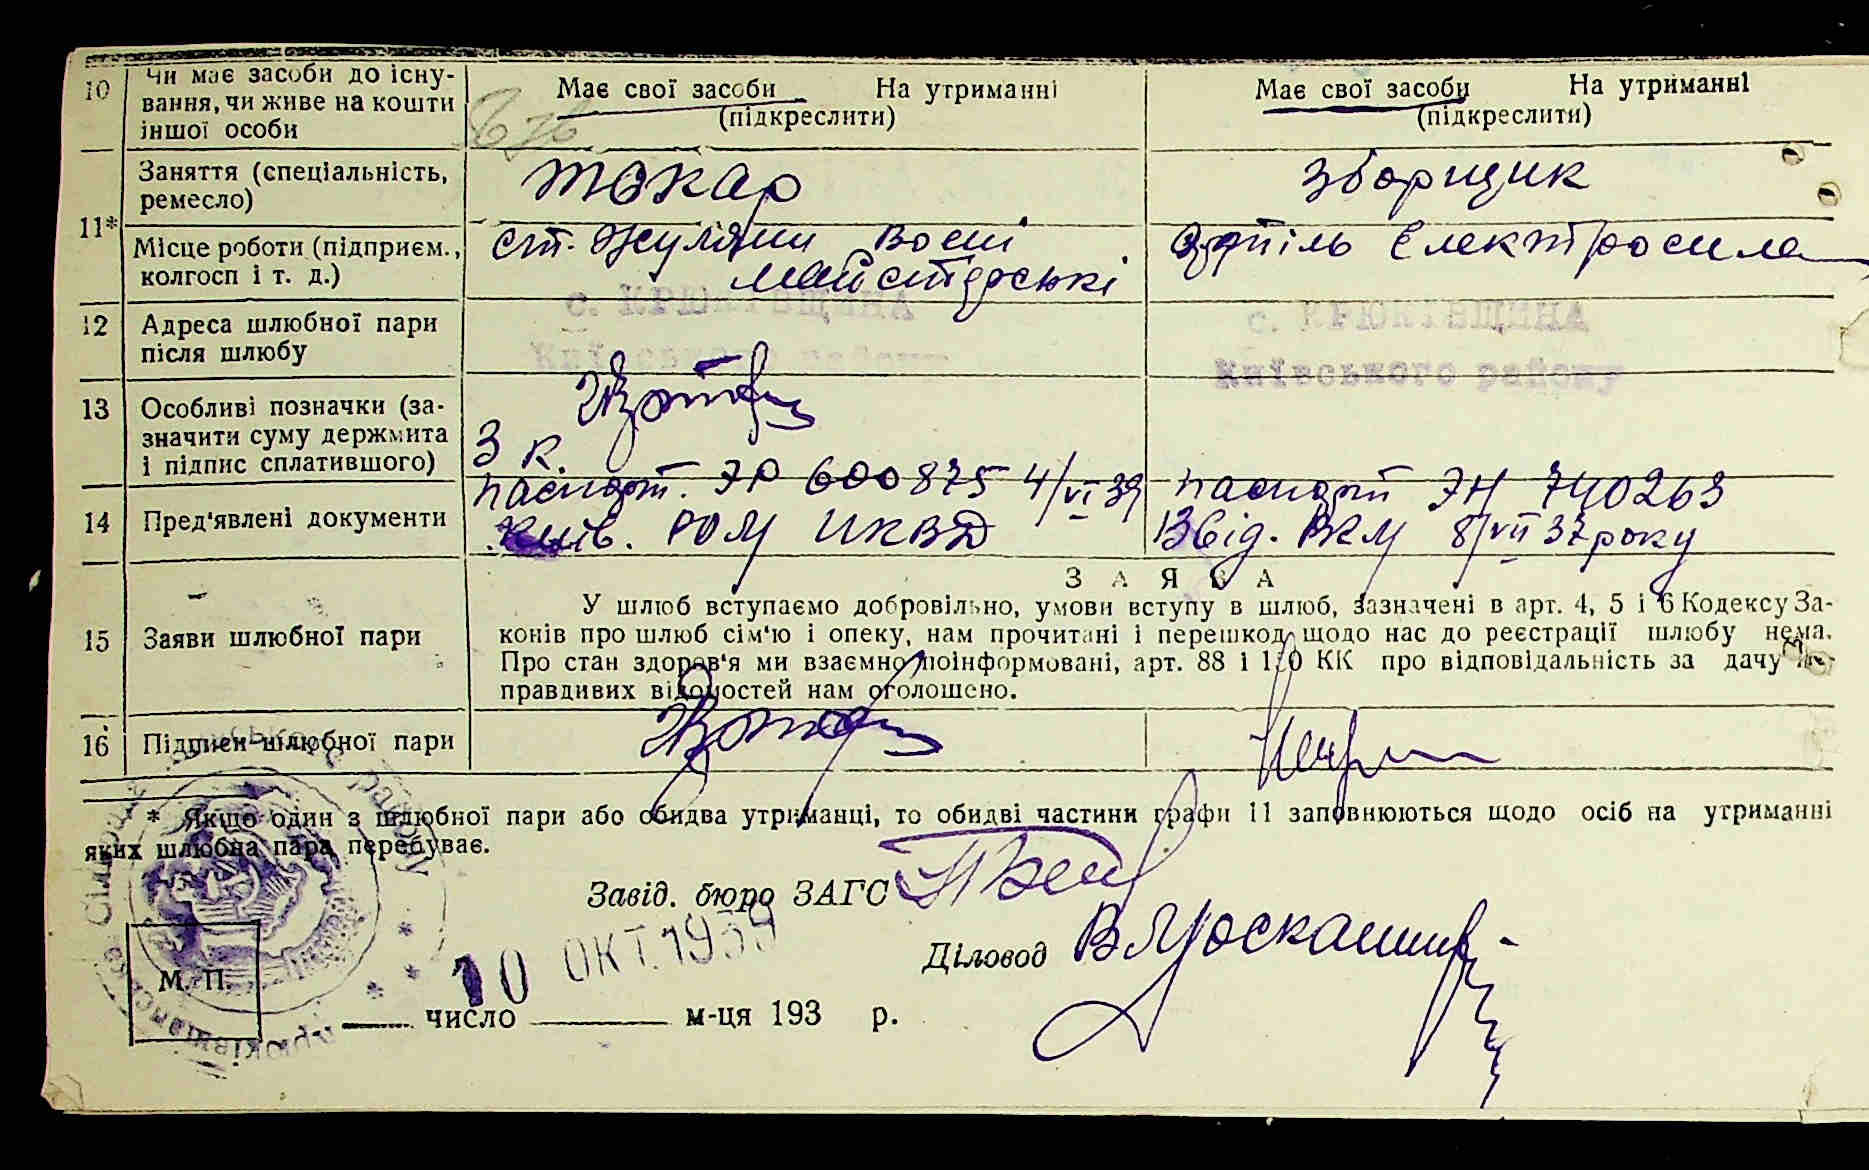 10 Чи має засоби до існу-
вання, чи живе на кошти
іншої особи
Має свої засоби На утриманні
(підкреслити)
Має свої засоби На утриманні
(підкреслити)
11*
Заняття (спеціальність,
ремесло)
токар
зборщик
Місце роботи (підприєм.,
колгосп і т. д.)
ст. Жуляни Воєні
майстерські
Електросила
12 Адреса шлюбної пари
після шлюбу
с. КРЮКІВЩИНА
Київського району
с. КРЮКІВЩИНА
Київського району
13 Особливі позначки (за-
значити суму держмита
і підпис сплатившого)
3 к.
14 Пред'явлені документи
паспорт. ЭР 600875 4/VI 39
Київ. РОМ НКВД
паспорт ЭН 740263
3 від. РКМ 8/VII 37 року
15 Заяви шлюбної пари
ЗАЯВА
У шлюб вступаємо добровільно, умови вступу в шлюб, зазначені в арт. 4, 5 і 6 Кодексу За-
конів про шлюб сім'ю і опеку, нам прочитані і перешкод щодо нас до реєстрації шлюбу нема.
Про стан здоров'я ми взаємно поінформовані, арт. 88 і КК про відповідальність за дачу не-
правдивих відомостей нам оголошено.
16 Підписи шлюбної пари
* Якщо один з шлюбної пари або обидва утриманці, то обидві частини графи 11 заповнюються щодо осіб на утриманні
яких шлюбна пара перебуває.
Завід. бюро ЗАГС
Діловод
М. П.
10 ОКТ. 1939
число м-ця 193 р.